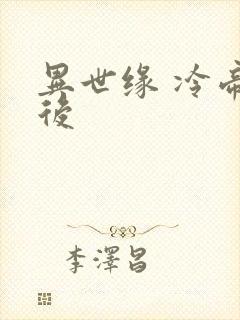 異世缘 冷帝
後
李澤昌